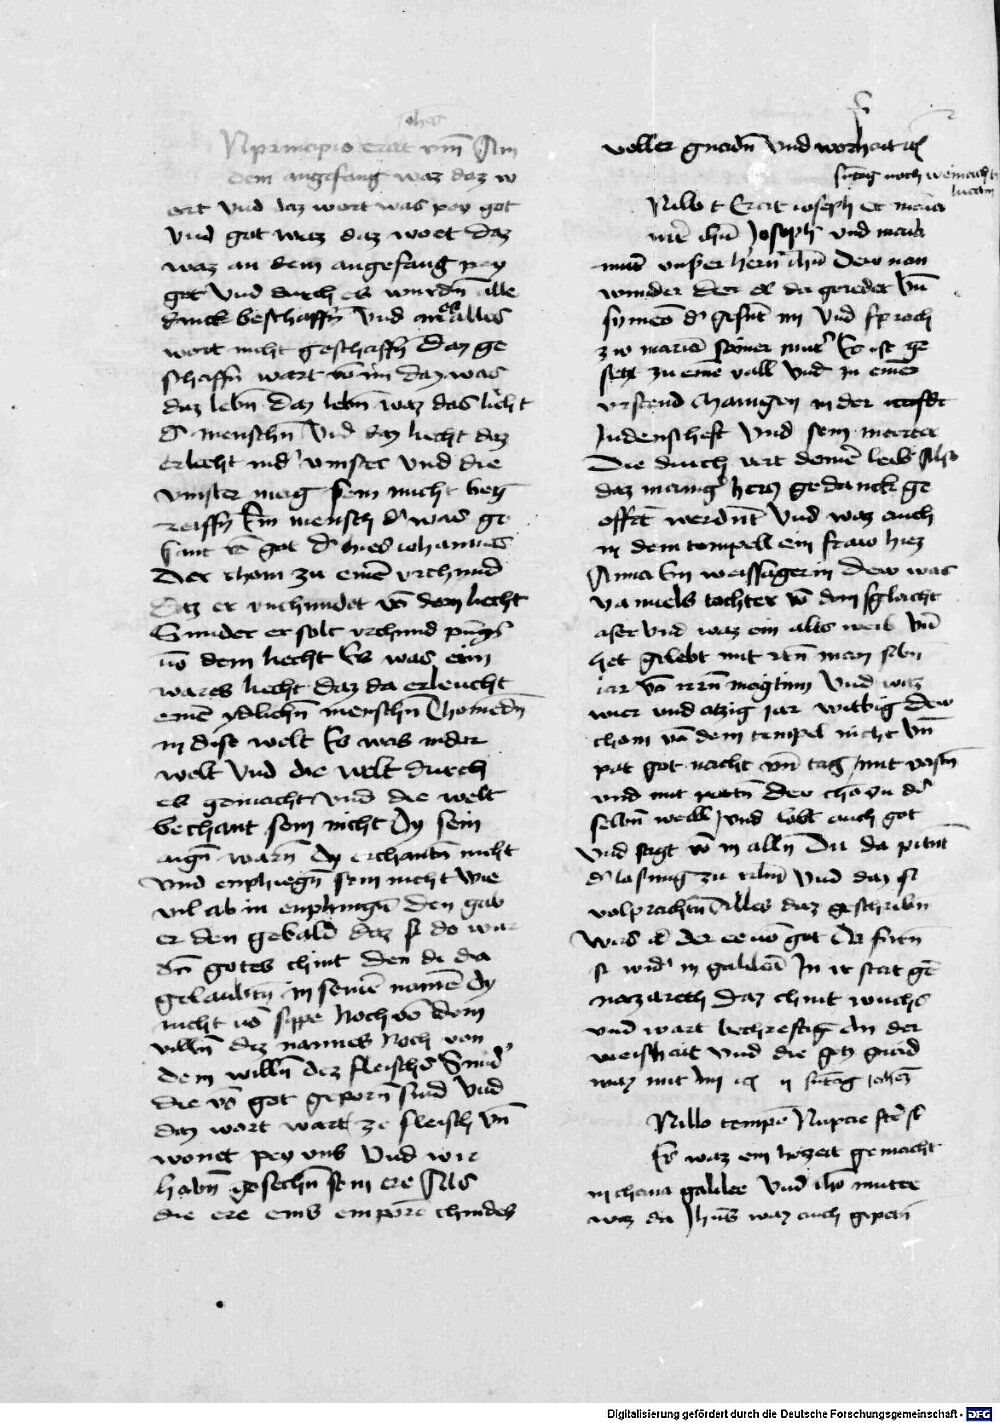 Johes
N principio erat v̄m Am
dem angefang waz daz w
ort vnd daz wort was pey got
vnd got waz daz wort daz
waz an dem angefang pey
got vnd durch es wurdn̄ alle
dinck beschaffn̄ vnd an alles
wort nicht geschaffn̄ daz ge
schaffn̄ wart vō im daz was
daz lebn̄ daz lebn̄ waz das licht
d' menschn̄ vnd daz liecht daz
erlucht in d' vinster vnd die
vinster mag sein nicht beg
reiffn̄ Ein mensch d' was ge
sant vō got d' hies iohannes
Der chom zu einē vrchund
Daz er vrchundet vō dem liecht
Sunder er solt vrchund
vō dem liecht Es was ein
wares liecht daz da erleucht
einē ydlichn̄ menschn̄ Chomedn̄
in dise welt Es was in der
welt vnd die welt durch
es gemacht vnd die welt
bechant sein nicht Dy sein
aign̄ warn̄ Dy erchantn̄ nicht
vnd enphiegn̄ sein nicht wie
vil ab in enphingn̄ den gab
er den gebald daz si do war
dn̄ gotes chint den di da
gelaubtn̄ in seinē namē Dy
nicht vō sippe noch vō dem
villn̄ dez mannes noch von
dem willn̄ dez fleischs Sund'
die vō got geporn̄ sind vnd
daz wort wart ze fleisch vn̄
wonet pey vns vnd wir
habn̄ gesechn̄ sein ere Als
die ere eins enporē chindes
voller gnadn̄ vnd worheit
sūtag noch weinacht
lucam
N illo t Erat ioseph et maria
mr̄ ihū Joseph vnd maria
mut' vnser hern̄ ihū Dew nan
wunder der el da geredet vn̄
symeō d' gesent in vnd sproch
zw maria seiner mut' Es ist ge
setzt zu einē vall vnd zu einer
vrstend Manigen in der
Judenscheft vnd sein
Die durch vert deinē leib Also
daz manig' hercz gedanck ge
offet werdnt vnd waz auch
in dem tempell ein fraw hiez
Anna Ein weissagerin dew was
vanuels tochter vō dem gslacht
aser vnd waz ein alts weib vn̄
het gelebt mit irn̄ man sibn̄
iar vō irn̄ magtum vnd waz
vier vnd atzig iar wittbig dew
cham vō dem tempel nicht vn̄
pat got nacht vn̄ tag mit vastn̄
vnd mit petn̄ Dew chō zu dē
selbn̄ weill vnd lobt auch got
vnd sagt vō im alln̄ Di da pitnt
d' losung zu irlm̄ vnd daz si
volprachtn̄ Alles daz geschribn̄
was in der ee vō got Da furn̄
si wid' in galileā In ir stat gē
nazareth Daz chint wuchs
vnd wart bechreftig An der
weisheit vnd die gotz gnad
waz mit im ij sūtag Johēs
N illo tempē Nupcie fcē st̄
Es waz ein hozeit gemacht
in chana galilee vnd ihō muter
waz da Jhūs waz auch gepetn̄
Digitalisierung gefördert durch die Deutsche Forschungsgemeinschaft - DFG